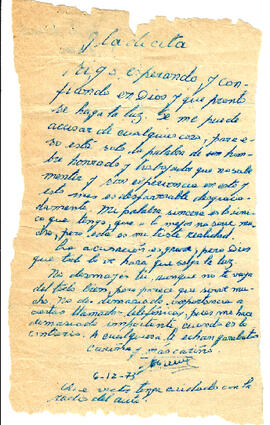 Gladicita
Sigo esperando y con-
fiando en Dios y que pronto
se haga la luz. Se me puede
acusar de cualquier cosa, pero
está solo la palabra de un hom
bre honrado y trabajador que no sabe
mentir y sin experiencia en esto y
esto mes es desfavorable desgracia
damente. Mi palabra sincera es lo úni
co que tengo, que a lo mejor no sirve mu
cho, pero esta es mi triste realidad.
La acusación es grave, pero Dios
que todo lo ve hará que salga la luz.
No desmayes tú, aunque no te vaya
del todo bien, pero parece que será mu
cho. No des demasiada importancia a
ciertas llamadas telefónicas, pues me hace
demasiado importante, cuando es lo
contrario. A cualquiera le echan garabatos
Cariños y más cariños
6-12-73